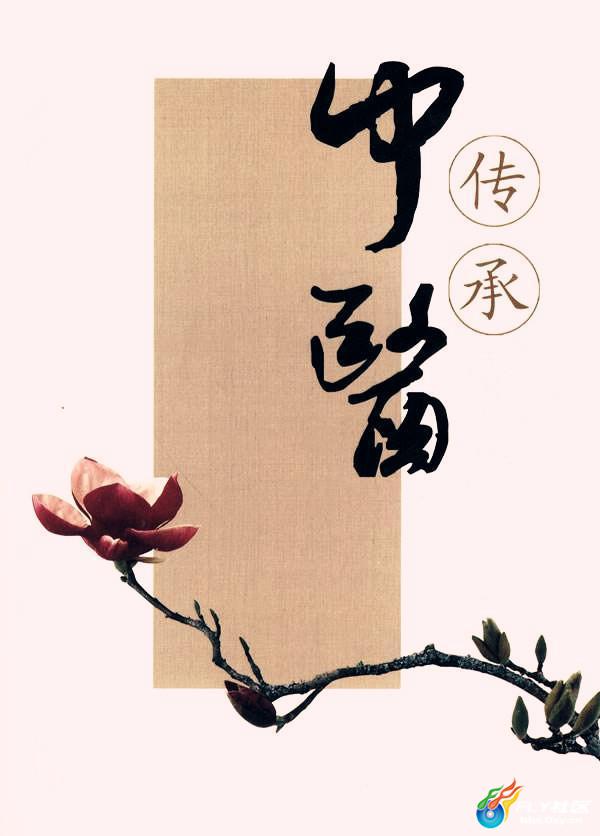 中醫
传承
FLY社区